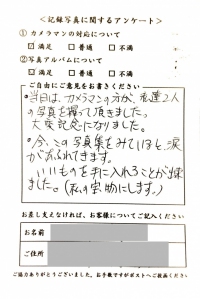 <記録写真に関するアンケート>
①カメラマンの対応について
☑満足 □普通 □不満
②写真アルバムについて
☑満足 □普通 □不満
ご自由にご意見をお書きください
・当日は、カメラマンの方が、友達2人
の写真を撮って頂きました。
大変記念になりました。
・今、この写真集をみていると、涙
があふれてきます。
いいものを手に入れることが出来
ました。(私の宝物にします。)
お差し支えなければ、お客様についてご記入ください
お名前
ご住所
ご協力ありがとうございました。お手数ですがポストへご投函ください